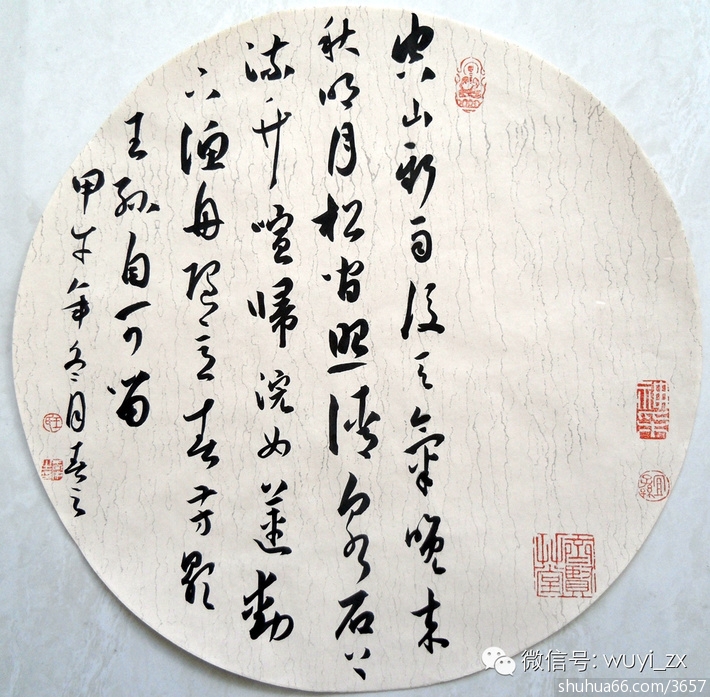 空山新雨後天氣晚来
秋明月松間照清泉石上
流竹喧歸浣女蓮動
下漁舟隨意春芳歇
王孫自可留
甲午年冬月春之
微信号: wuyi_zx
shuhua66.com/3657